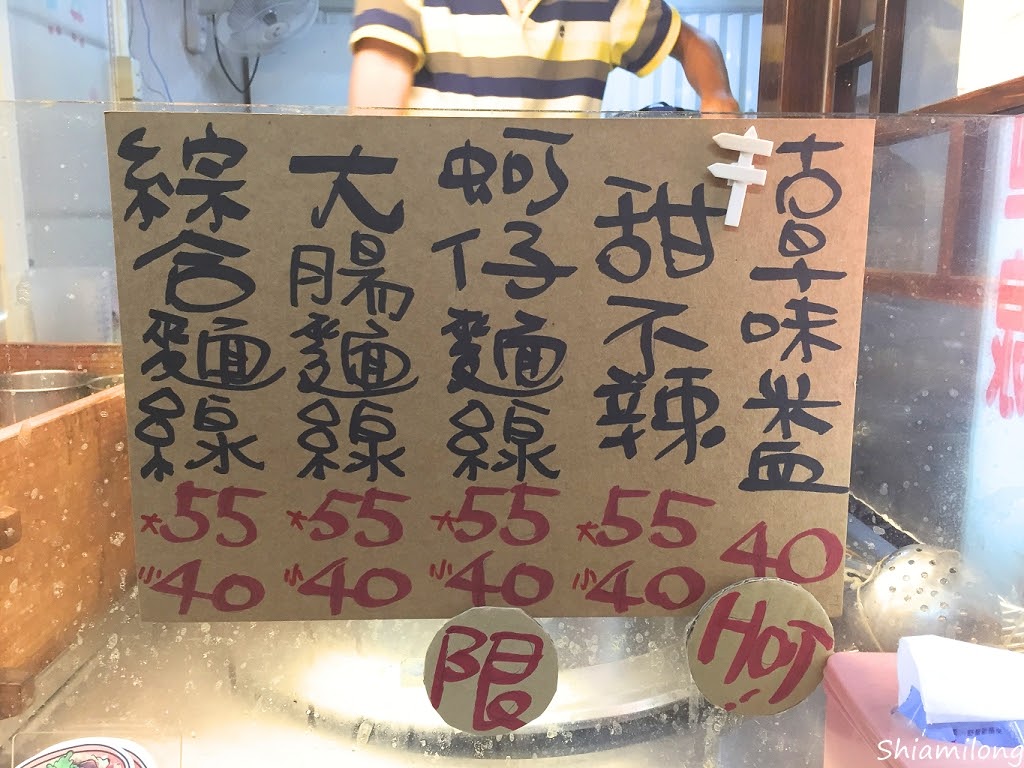 古早味米血
40
甜不辣
大55
小40
蚵仔麵線
大55
小40
大腸麵線
大55
小40
綜合麵線
大55
小40
限
HOT!
Shiamilong